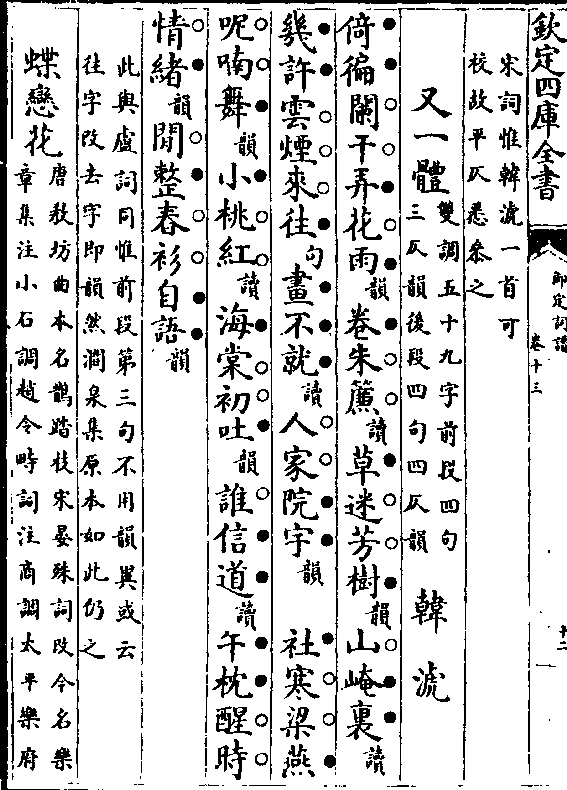 欽定四庫全書
御定詞譜
卷十三
十二
宋詞惟韓淲一首可
校故平仄悉參之
又一體
雙調五十九字前段四句
三仄韻後段四句四仄韻
韓淲
倚徧闌干弄花雨韻卷朱簾讀草迷芳樹韻山崦裏讀
幾許雲煙來往句畫不就讀人家院宇韻 社寒梁燕
呢喃舞韻小桃紅讀海棠初吐韻誰信道讀午枕醒時
情緒韻閒整春衫自語韻
此與盧詞同惟前段第三句不用韻異或云
往字改去字即韻然澗泉集原本如此仍之
蝶戀花
唐教坊曲本名鵲踏枝宋晏殊詞改今名樂
章集注小石調趙令畤詞注商調太平樂府